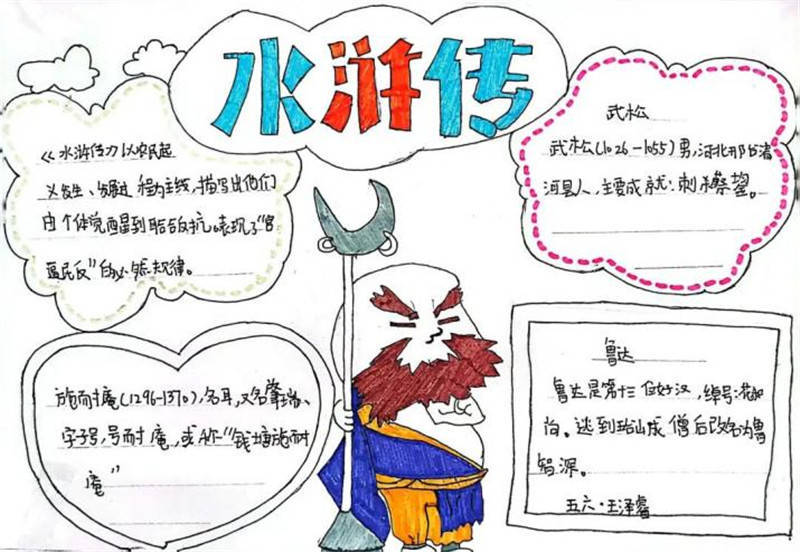 水浒传
《水浒传》以农民起
义发生、发展过程为主线,描写出他们
由个体觉醒到联合反抗。表现了"官
逼民反"的必然规律。
武松
武松(1026-1055)男,河北邢台清
河县人,主要成就:刺杀蔡鋆。
施耐庵(1296-1370),名耳,又名肇瑞、
字子安,号耐庵,或称"钱塘施耐
庵"
鲁达
鲁达是第十三位好汉,绰号:花和
尚。逃到五台山成僧后改名为鲁
智深。
五六·王泽睿